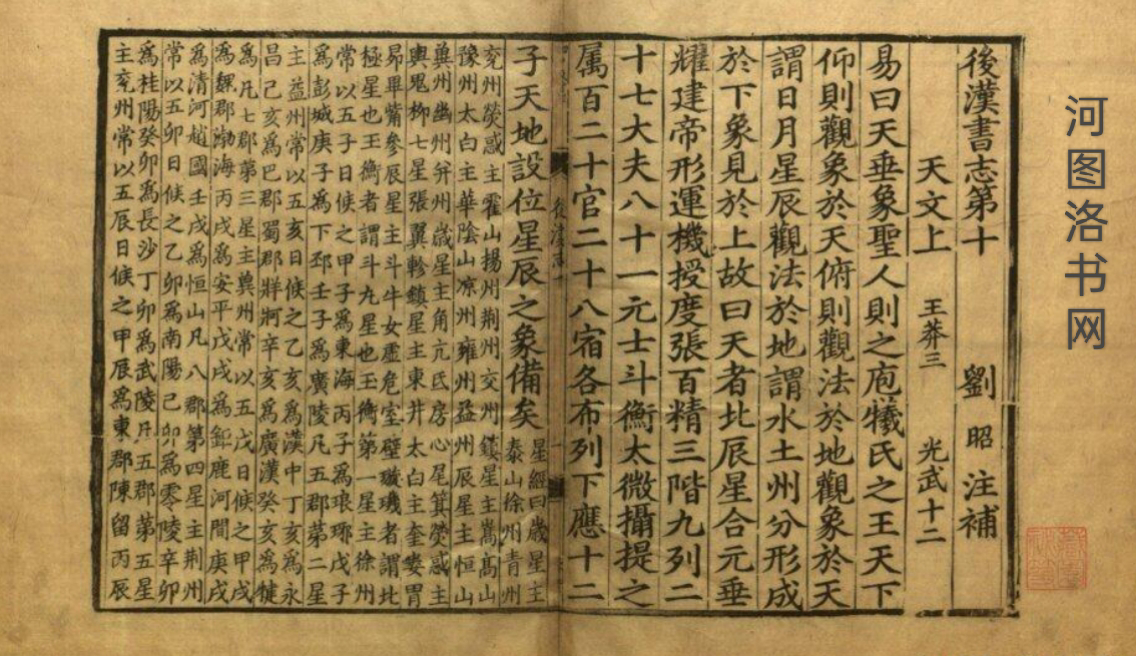 後漢書志第十 劉昭注補
天文上 王莽三 光武十二
易曰天垂象聖人則之庖犧氏之王天下
仰則觀象於天俯則觀法於地觀象於天
謂日月星辰觀法於地謂水土州分形成
於下象見於上故曰天者北辰星合元垂
耀建帝形運機授度張百精三階九列二
十七大夫八十一元士斗衡太微攝提之
属百二十官二十八宿各布列下應十二
子天地設位星辰之象備矣
星經曰歲星主
泰山徐州青州
兖州熒惑主霍山揚州荆州交州鎮星主嵩高山
豫州太白主華陰山凉州雍州益州辰星主恒山
冀州幽州并州歲星主角亢氐房心尾箕熒惑主
輿鬼柳七星張翼軫鎮星主東井太白主奎婁胃
昴畢觜參辰星主斗牛女虛危室壁璇璣者謂北
極星也玉衡者謂斗九星也玉衡第一星主徐州
常以五子日候之甲子為東海丙子為琅琊戊子
為彭城庚子為下邳壬子為廣陵凡五郡第二星
主益州常以五亥日候之乙亥為漢中丁亥為永
昌己亥為巴郡蜀郡牂牁辛亥為廣漢癸亥為犍
為凡七郡第三星主冀州常以五戌日候之甲戌
為魏郡渤海丙戌為安平戊戌為鉅鹿河間庚戌
為清河趙國壬戌為恒山凡八郡第四星主荆州
常以五卯日候之乙卯為南陽己卯為零陵辛卯
為桂陽癸卯為長沙丁卯為武陵凡五郡第五星
主兖州常以五辰日候之甲辰為東郡陳留丙辰
河图洛书网